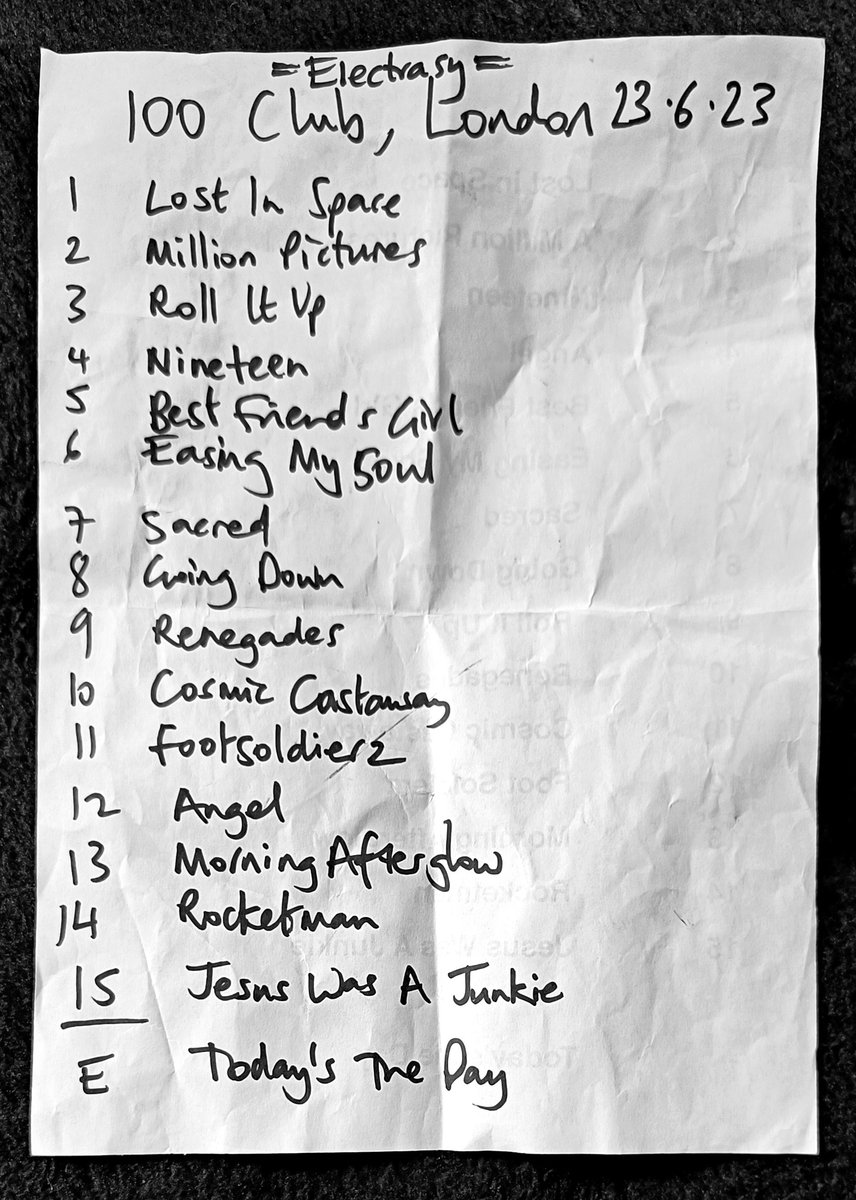 =Electrasy=
100 Club, London 23.6.23
1 Lost In Space
2 Million Pictures
3 Roll It Up
4 Nineteen
5 Best Friends Girl
6 Easing My Soul
7 Sacred
8 Going Down
9 Renegades
10 Cosmic Castaway
11 Footsoldierz
12 Angel
13 Morning Afterglow
14 Rocketman
15 Jesus Was A Junkie
E Today's The Day